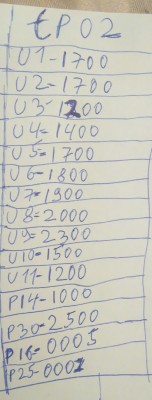 EP02
U1-1700
U2-1700
U3-1200
U4-1400
U5-1700
U6-1800
U7-1900
U8=2000
U9=2300
U10-1500
U11-1200
P14-1000
P30-2500
P16-0005
P25-0002